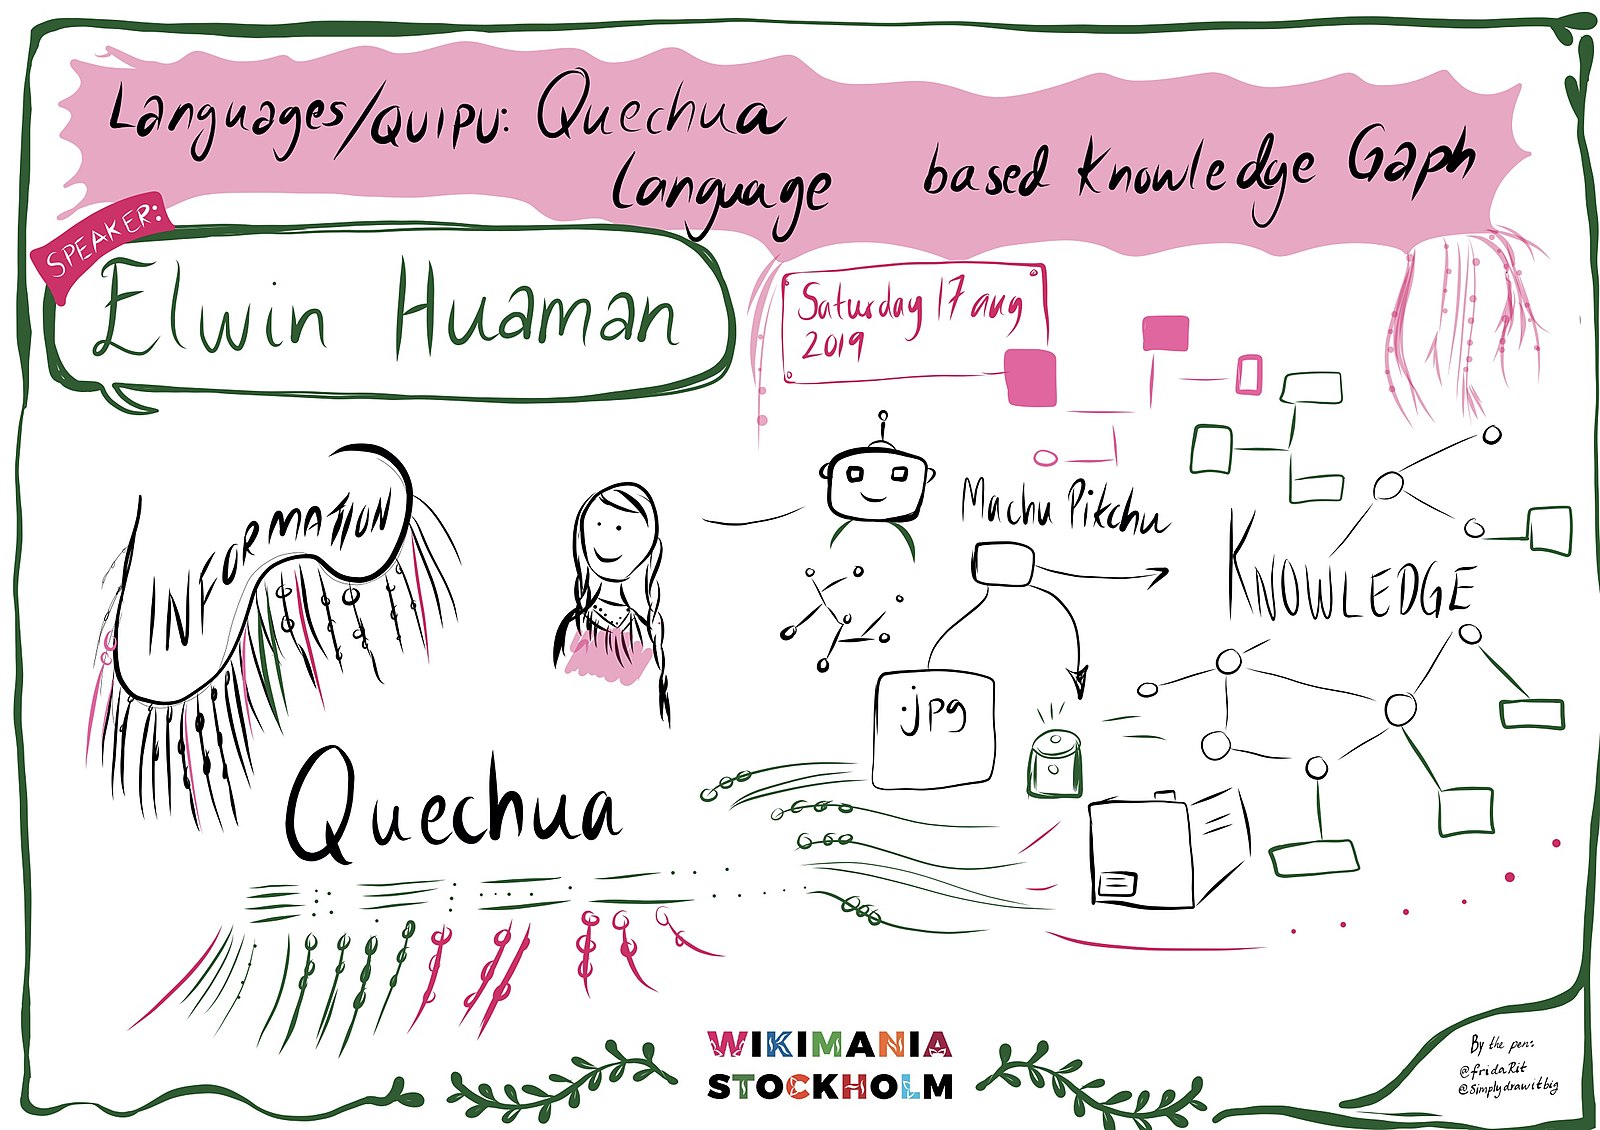 Languages/QUIPU: Quechua
Language based Knowledge Gaph
SPEAKER:
Elwin Huaman
Saturday 17 aug
2019
INFORMATION
Machu Pikchu
KNOWLEDGE
.jpg
Quechua
WIKIMANIA
STOCKHOLM
By the pens
@fridaRit
@simplydrawitbig